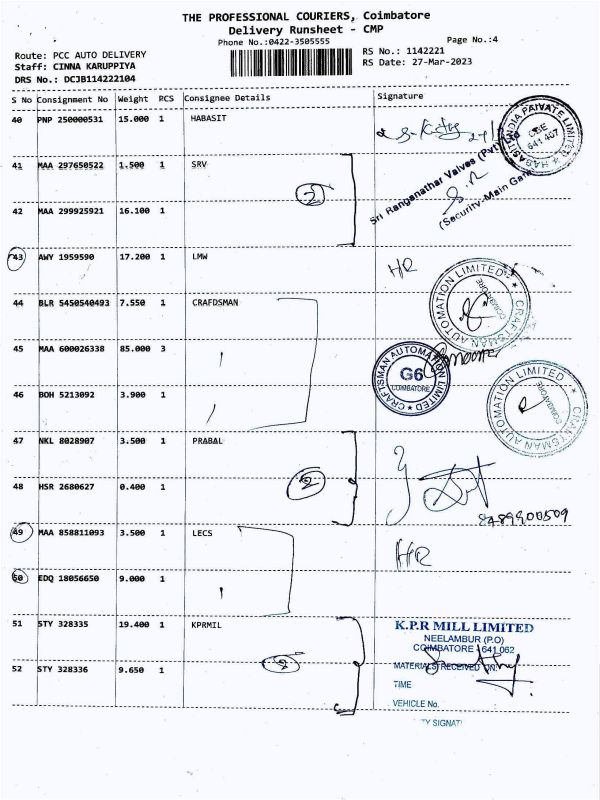 THE PROFESSIONAL COURIERS, Coimbatore
Delivery Runsheet - CMP
Phone No.:0422-3505555
Page No.:4
Route: PCC AUTO DELIVERY
RS No.: 1142221
Staff: CINNA KARUPPIYA
RS Date: 27-Mar-2023
DRS No.: DCJB114222104
S No Consignment No Weight PCS Consignee Details Signature
40 PNP 250000531 15.000 1 HABASIT
HABASIT INDIA PRIVATE LIMITED
CBE
641 407
41 MAA 297650522 1.500 1 SRV
Sri Ranganathar Valves (Pvt) Ltd
2
(Security-Main Gate
42 MAA 299925921 16.100 1
43 AWY 1959590 17.200 1 LMW
HR
44 BLR 5450540493 7.550 1 CRAFDSMAN
CRAFTSMAN AUTOMATION LIMITED
COIMBATORE
45 MAA 600026338 85.000 3
CRAFTSMAN AUTOMATION LIMITED
G6
COIMBATORE
46 BOH 5213092 3.900 1
CRAFTSMAN AUTOMATION LIMITED
COIMBATORE
47 NKL 8028907 3.500 1 PRABAL
48 HSR 2680627 0.400 1
2
8489900509
49 MAA 858811093 3.500 1 LECS
HR
50 EDQ 18056650 9.000 1
51 STY 328335 19.400 1 KPRMIL
K.P.R MILL LIMITED
NEELAMBUR (P.O)
COIMBATORE - 641 062
52 STY 328336 9.650 1
2
MATERIALS RECEIVED ON:
TIME
VEHICLE No.
TY SIGNAT